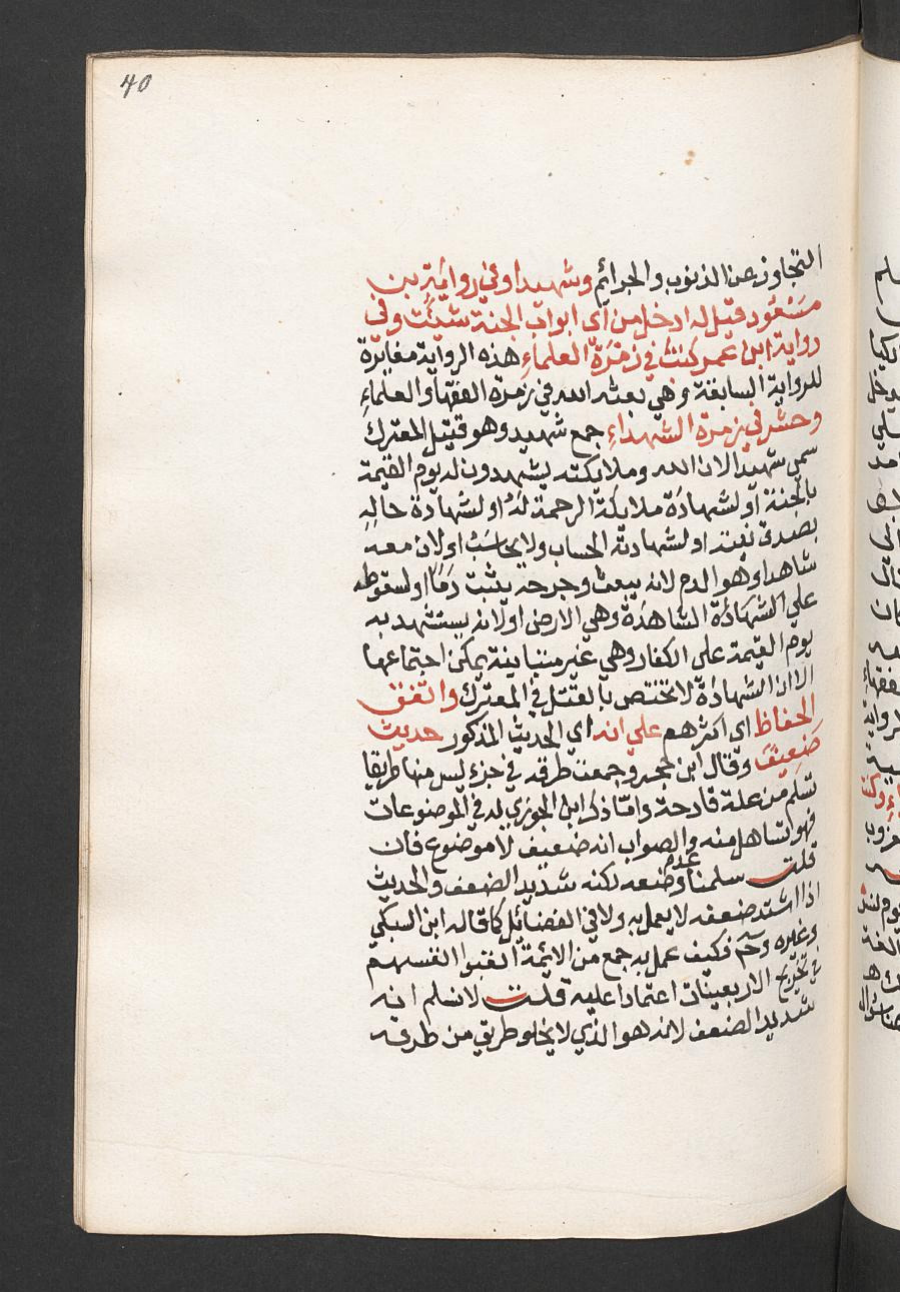 40
التجاوز عن الذنوب والجرائم وشهيدا وفي رواية بن
مسعود قيل له ادخل من اي ابواب الجنة شئت وفي
رواية ابن عمر كتب في زمرة العلماء هذه الرواية مغايرة
للرواية السابقة وهي بعثه الله في زمرة الفقها والعلماء
وحشر في زمرة الشهداء جمع شهيد وهو قتيل المعترك
سمي شهيدا لان الله وملايكته يشهدون له يوم القيمة
بالجنة او لشهادة ملايكة الرحمة له او لشهادة حاله
بصدق نيته او لشهادته الحساب ولا يحاسب او لان معه
شاهدا وهو الدم لانه يبعث وجرحه يثبت دما او لسقوطه
على الشهادة الشاهدة وهي الارض او لانه يستشهد به
يوم القيمة على الكفار وهي غير متباينة يمكن اجتماعها
الا ان الشهادة لا تختص بالقتل في المعترك واتفق
الحفاظ اي اكثرهم على انه اي الحديث المذكور حديث
ضعيف وقال ابن حجر وجمعت طرقه في جزء ليس منها طريقا
تسلم من علة قادحة واما ذكر ابن الجوزي له في الموضوعات
فهو تساهل منه والصواب انه ضعيف لا موضوع فان
قلت سلمنا عدم وضعه لكنه شديد الضعف والحديث
اذا اشتد ضعفه لا يعمل به ولا في الفضائل كما قاله ابن السبكي
وغيره وح فكيف عمل به جمع من الايمة اتعبوا انفسهم
في تخريج الاربعينات اعتمادا عليه قلت لا نسلم انه
شديد الضعف لانه هو الذي لا يخلو طريق من طرقه